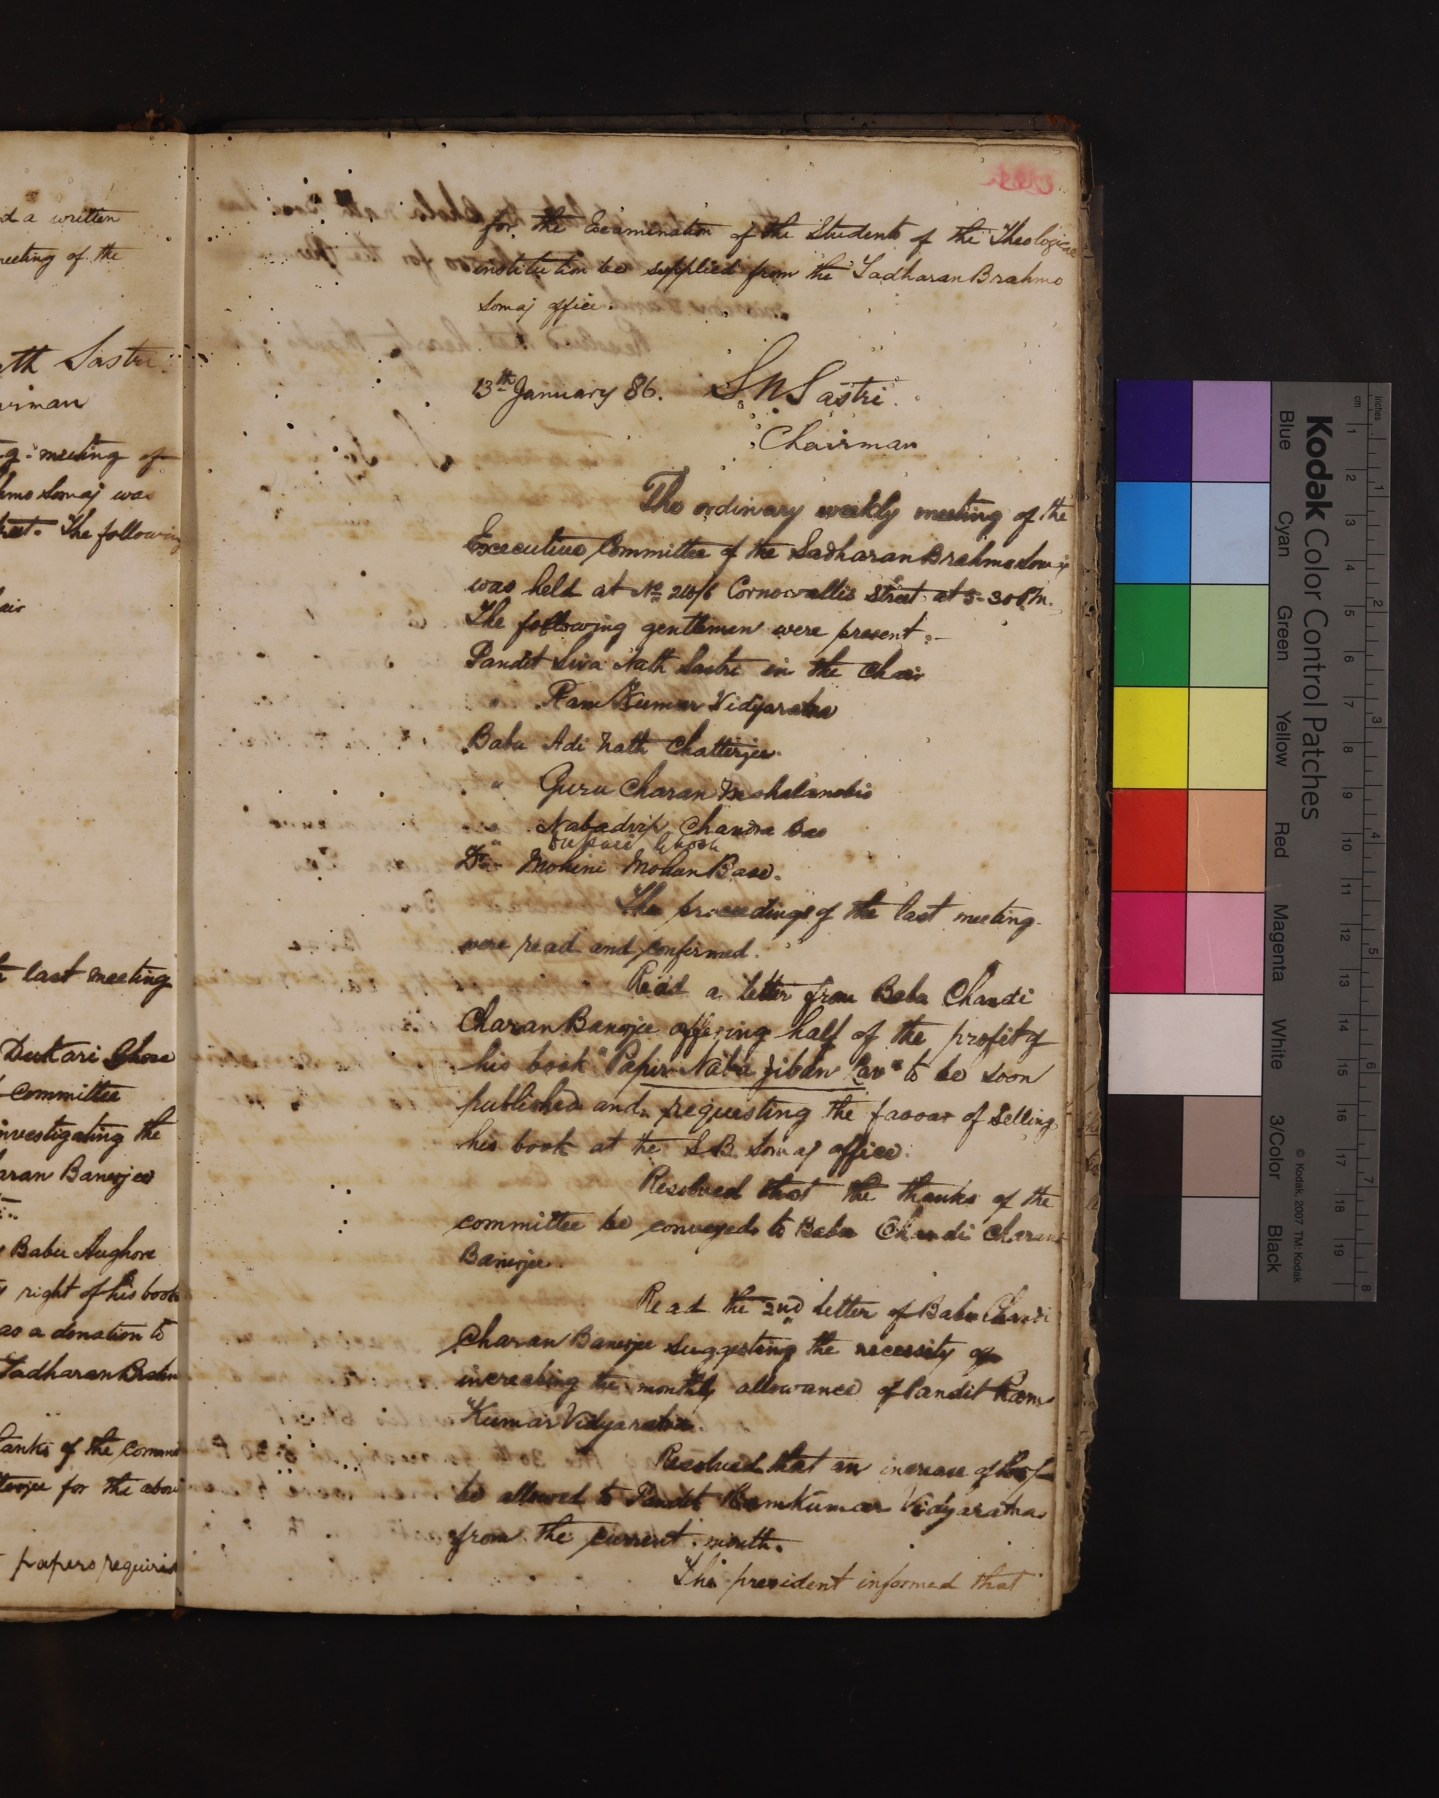 d a written
meeting of the
ath Sastri
airman
g meeting of
hmo Somaj was
treet. The following
air
last meeting
Dukari Ghose
committee
investigating the
aran Banerjee
Babu Aughore
right of his book
as a donation to
Sadharan Brahm
anks of the comm
terjee for the abov
papers required
for the Examination of the Students of the Theological
institution be supplied from the Sadharan Brahmo
Somaj office.
13th January 86. S N Sastri
Chairman
The ordinary weekly meeting of the
Executive Committee of the Sadharan Brahmo Somaj
was held at No Cornwallis Street at 5-30 P.M.
The following gentlemen were present :-
Pandit Siva Nath Sastri in the Chair
" Ram Kumar Vidyaratna
Babu Adi Nath Chatterjee.
" Guru Charan Mahalanobis
" Nabadvip Chandra Das
" Dukari Ghosh
Dr Mohini Mohan Base.
The proceedings of the last meeting
were read and confirmed.
Read a letter from Babu Chandi
Charan Banerjee offering half of the profit of
his book "Papir Naba Jiban " to be soon
published and requesting the favour of selling
his book at the S.B. Somaj office.
Resolved that the thanks of the
committee be conveyed to Babu Chandi Charan
Banerjee.
Read the 2nd letter of Babu Chandi
Charan Banerjee suggesting the necessity of
increasing the monthly allowance of Pandit Ram
Kumar Vidyaratna.
Resolved that an increase of
be allowed to Pandit Ramkumar Vidyaratna
from the current month.
The president informed that
Kodak Color Control Patches
Blue Cyan Green Yellow Red Magenta White 3/Color Black
© Kodak, 2007 TM: Kodak
inches 1 2 3 4 5 6 7 8
cm 1 2 3 4 5 6 7 8 9 10 11 12 13 14 15 16 17 18 19